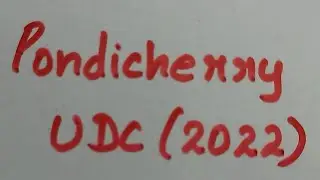 Pondicherry
UDC (2022)